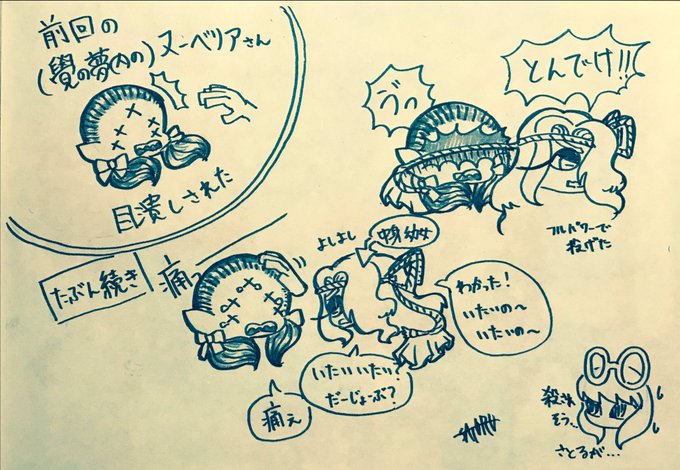 前回の
(覺の夢内の)ヌーベリアさん
目潰しされた
とんでけ!!
ゔっ
フルパワーで
投げた
たぶん続き
痛っ
よしよし
中身幼女
わかった!
いたいの〜
いたいの〜
いたいいたい?
だーじょーぶ?
痛ぇ
殺され
そう…
さとるが…